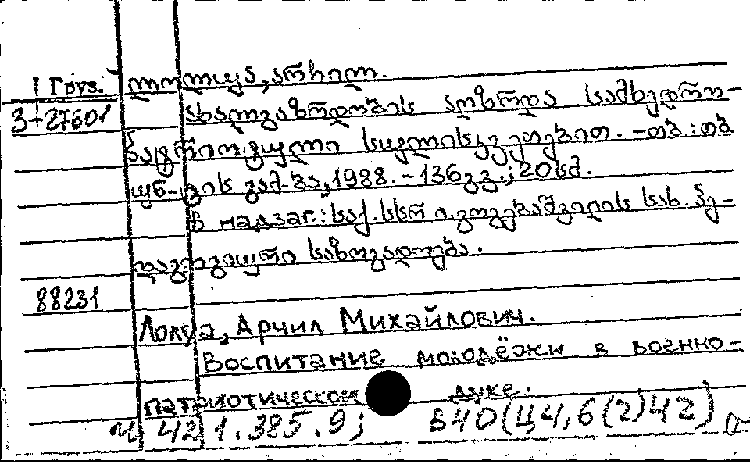 ლოლუა, არჩილ.
1 Груз.
3-27601
ახალგაზრდობის აღზრდა სამხედრო-
პატრიოტული სულისკვეთებით. - თბ.: თბ.
უნ-ტის გამ-ბა, 1988. - 136გვ.; 20სმ.
В надзаг.: საქ. სსრ ი. გოგებაშვილის სახ. პე-
დაგოგიური საზოგადოება.
88231
Лолуа, Арчил Михайлович.
Воспитание молодёжи в военно-
патриотическом духе.
Ч 421.385.9; В40(Ц4,6(2)42)